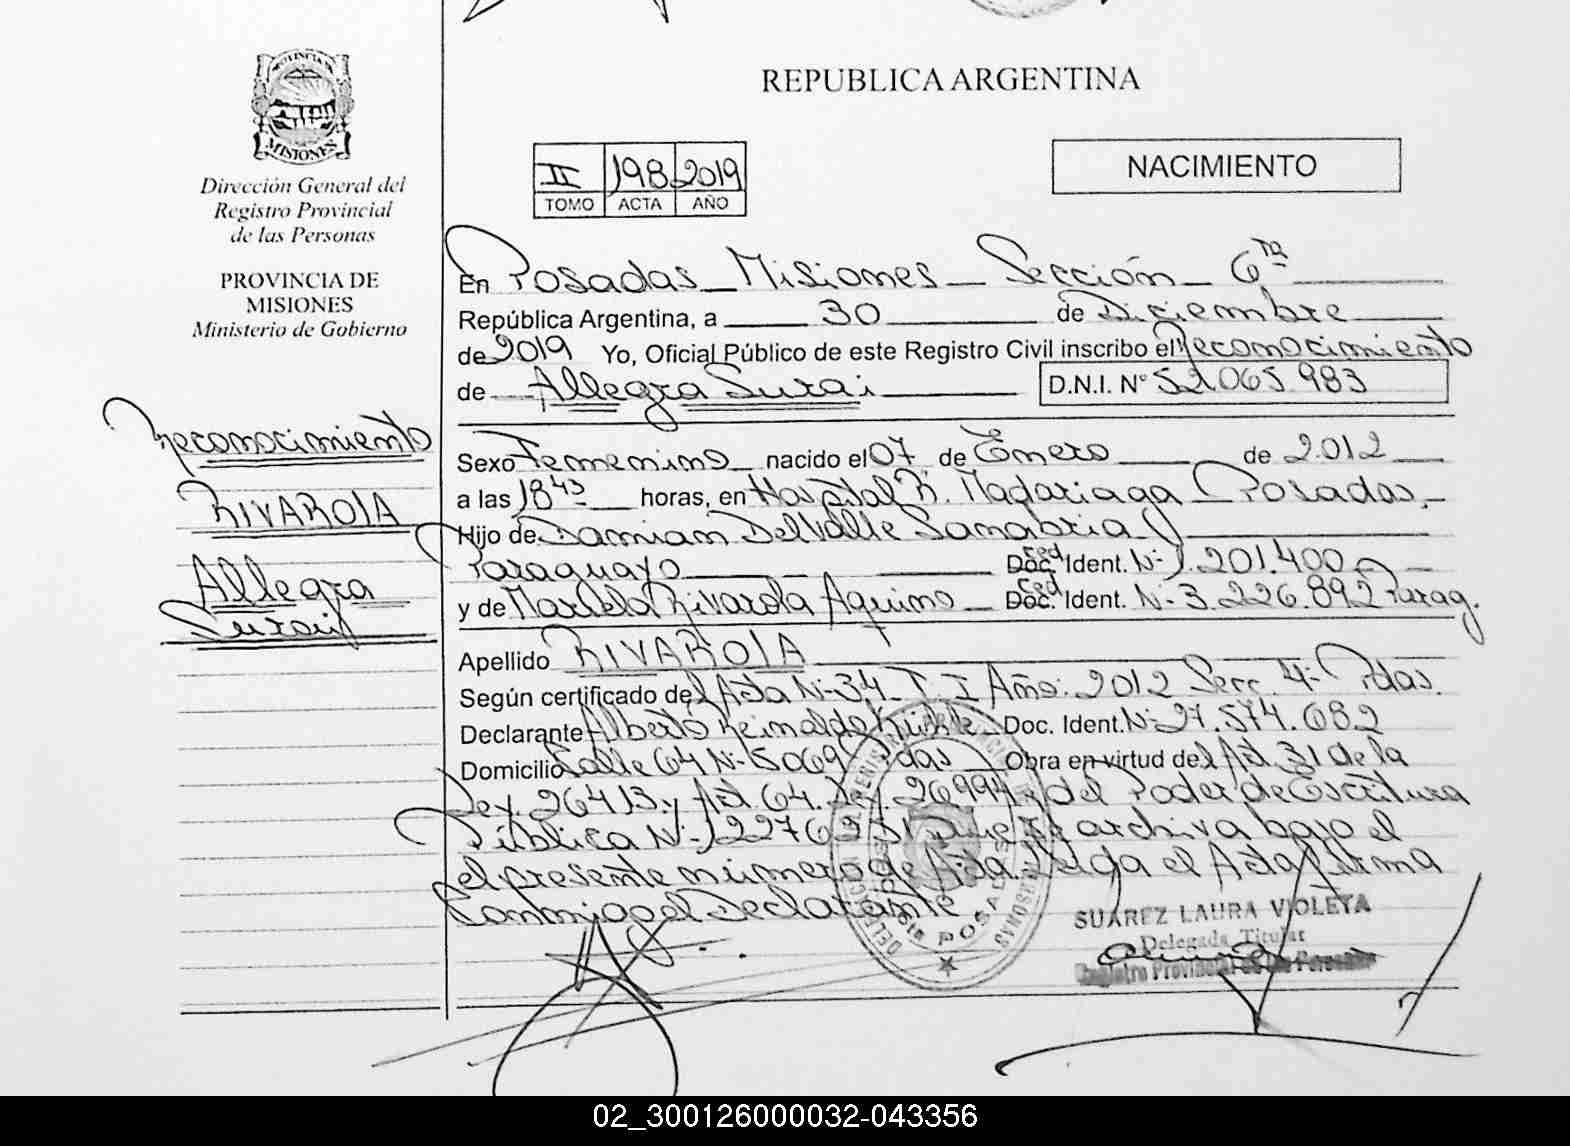 PROVINCIA DE
MISIONES
Dirección General del
Registro Provincial
de las Personas
PROVINCIA DE
MISIONES
Ministerio de Gobierno
Reconocimiento
RIVAROLA
Allegra
Surai
REPUBLICA ARGENTINA
II 198 2019
TOMO ACTA AÑO
NACIMIENTO
En Posadas - Misiones - Sección - 6ta
República Argentina, a 30 de Diciembre
de 2019 Yo, Oficial Público de este Registro Civil inscribo el Reconocimiento
de Allegra Surai D.N.I. N° 52.065.983
Sexo Femenino nacido el 07 de Enero de 2012
a las 18 43 horas, en Hospital R. Madariaga - Posadas.
Hijo de Damian Del Valle Sanabria
Paraguayo Ced Doc. Ident. N- 1.201.400
y de Mariela Rivarola Aquino Ced Doc. Ident. N- 3.226.892 Parag.
Apellido RIVAROLA
Según certificado del Acta N- 34 T. I Año: 2012 Secc. 4- Pdas.
Declarante Alberto Reinaldo Doc. Ident. N- 27.574.682
Domicilio Calle 64 N- 5069 Pdas Obra en virtud del Art. 31 de la
Ley. 26413 y Art. 64. Ley. 26994 y del Poder de Escritura
Pública N- que se archiva bajo el
el presente número de Acta. Leida el Acta firma
Conmigo el Declarante
SUAREZ LAURA VIOLETA
Delegada Titular
Registro Provincial de las Personas
POSADAS
02_300126000032-043356